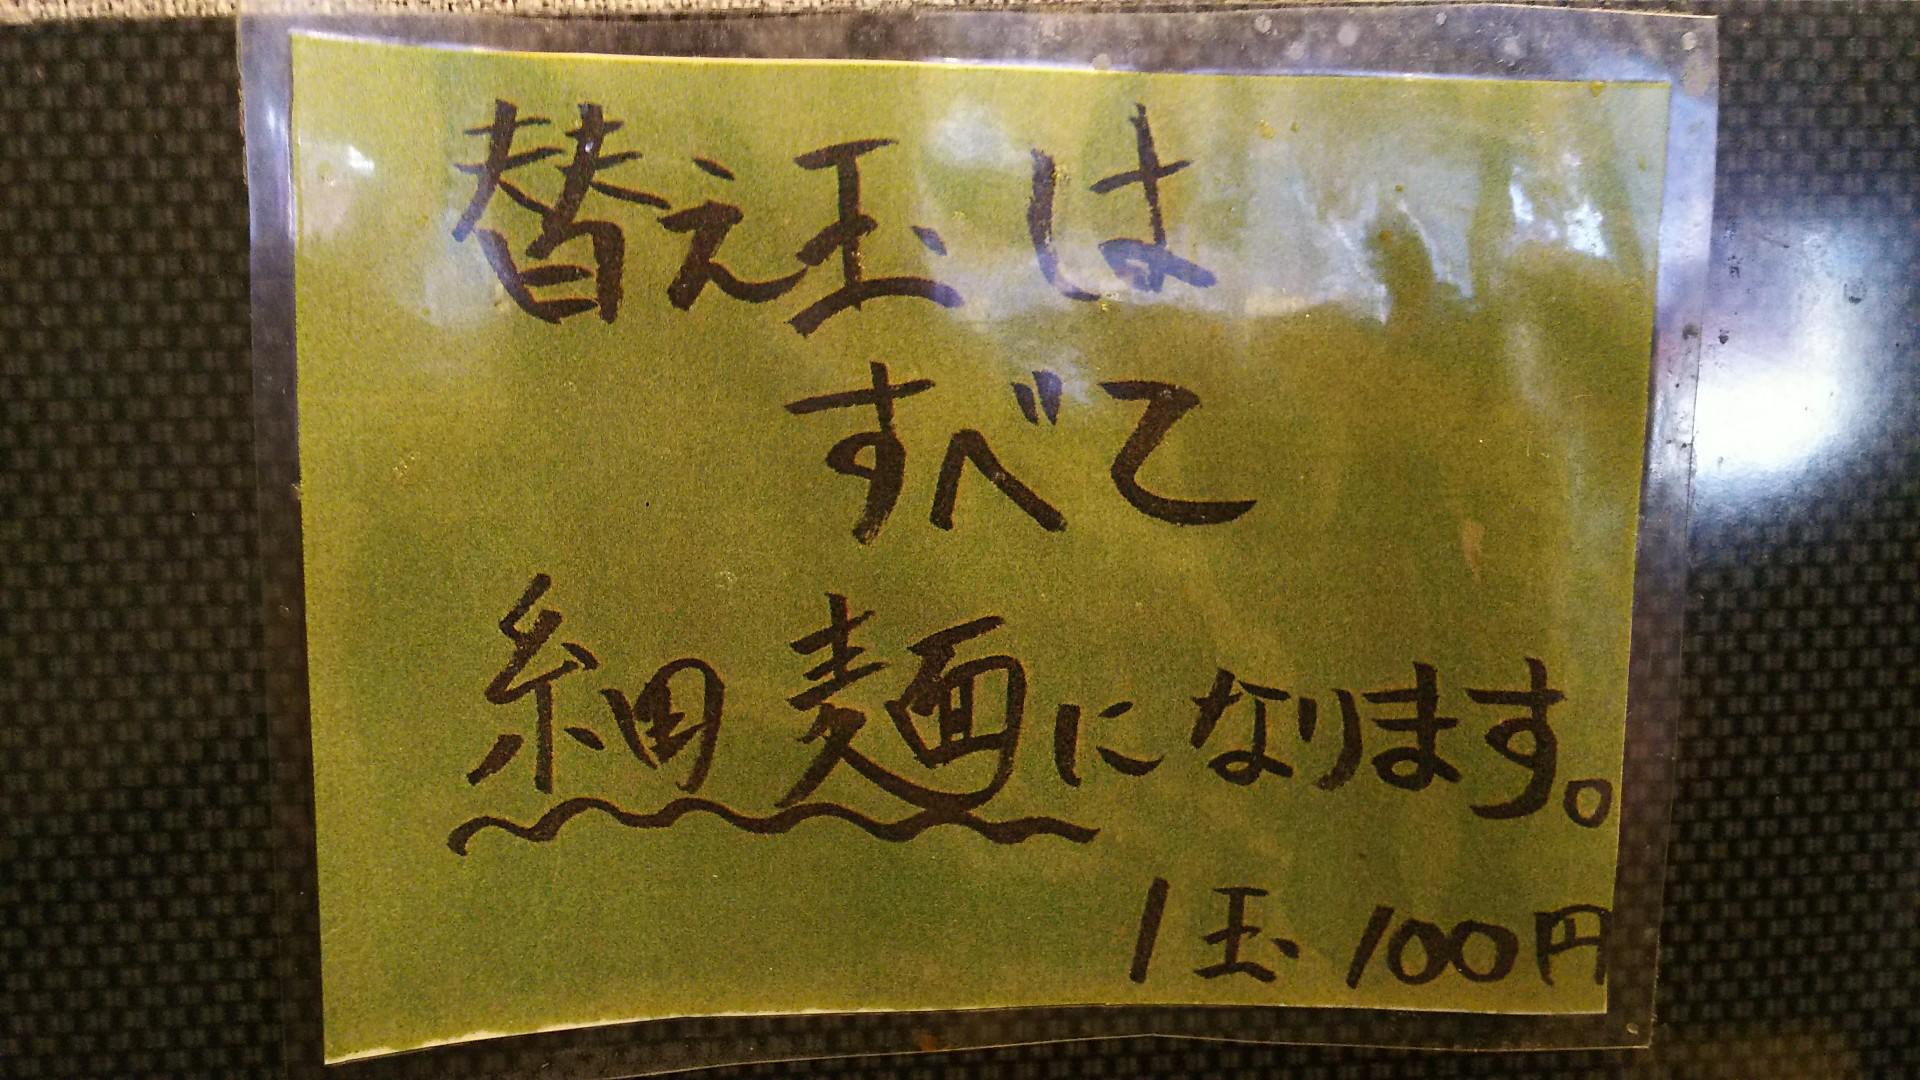 替え玉は
すべて
細麺になります。
1玉 100円